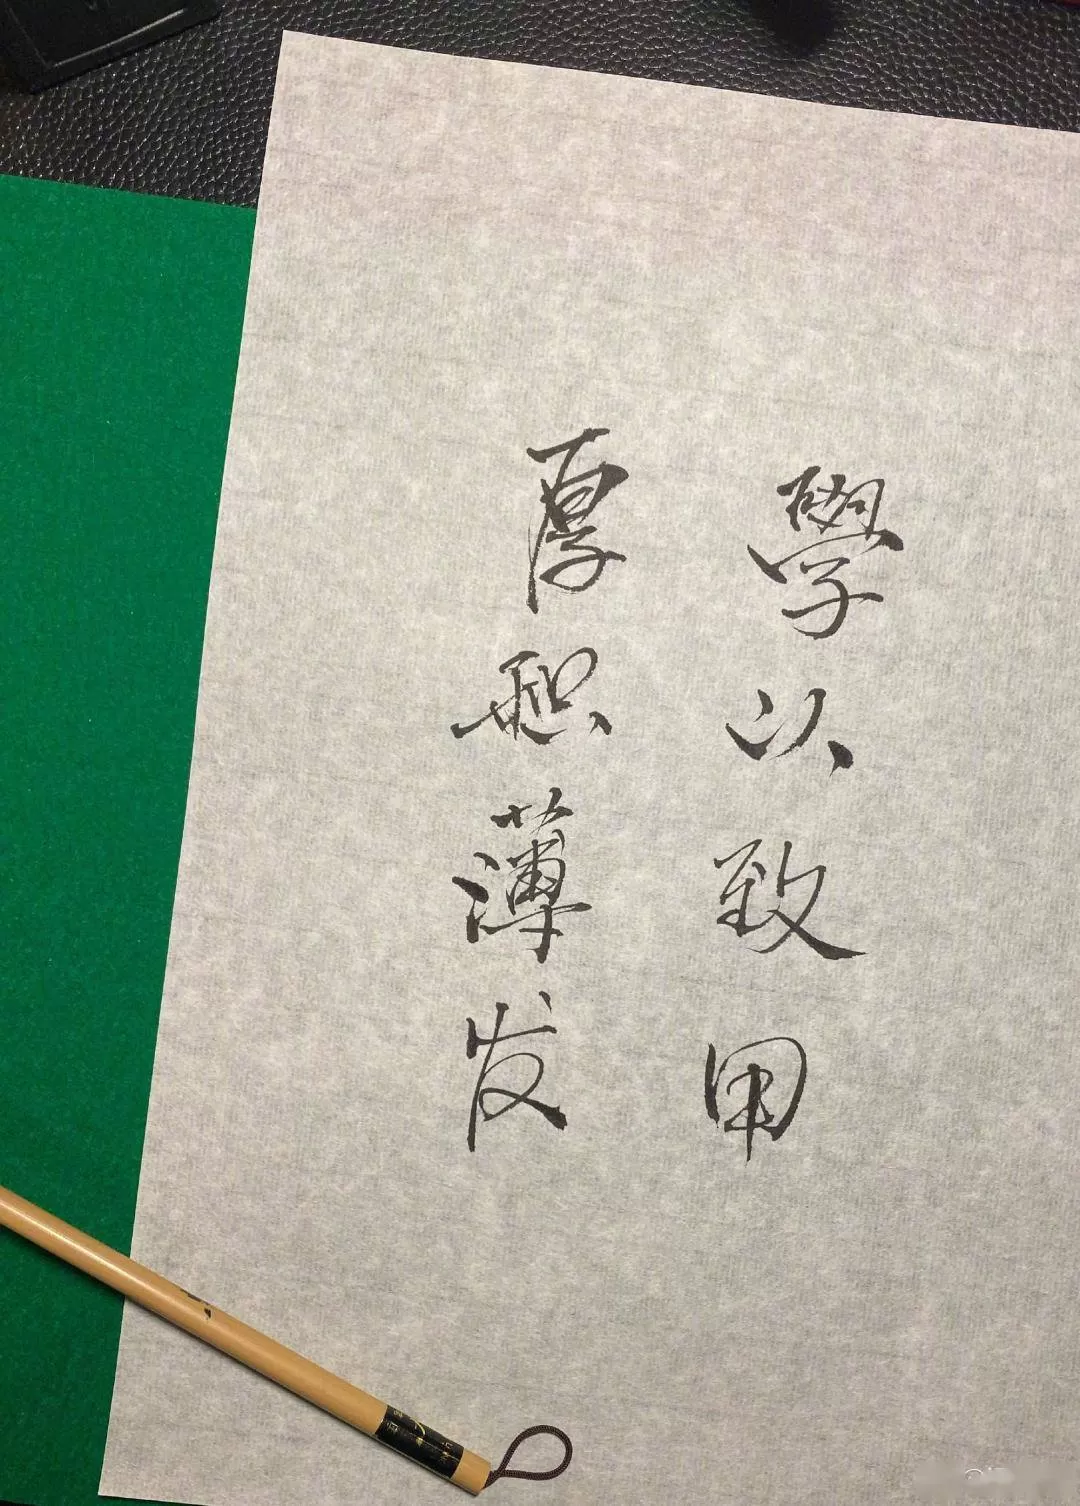 學以致用
厚积薄发